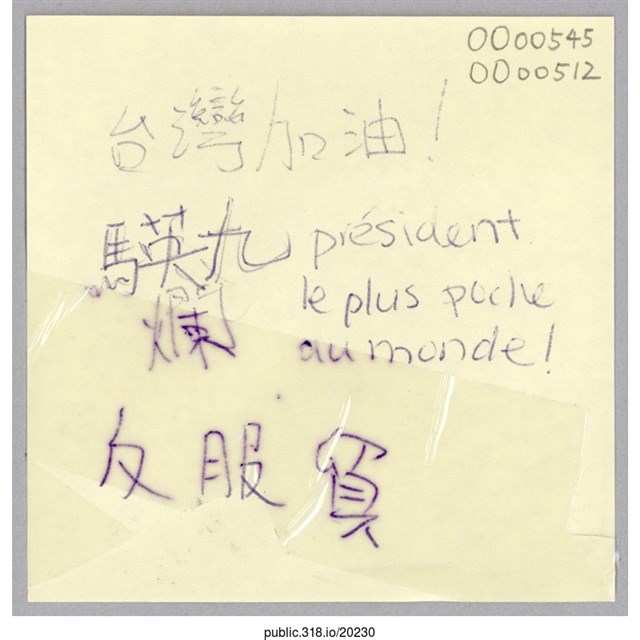 0000545
0000512
台灣加油!
馬英九 président
爛 le plus poche
au monde!
反服貿
public.318.io/20230